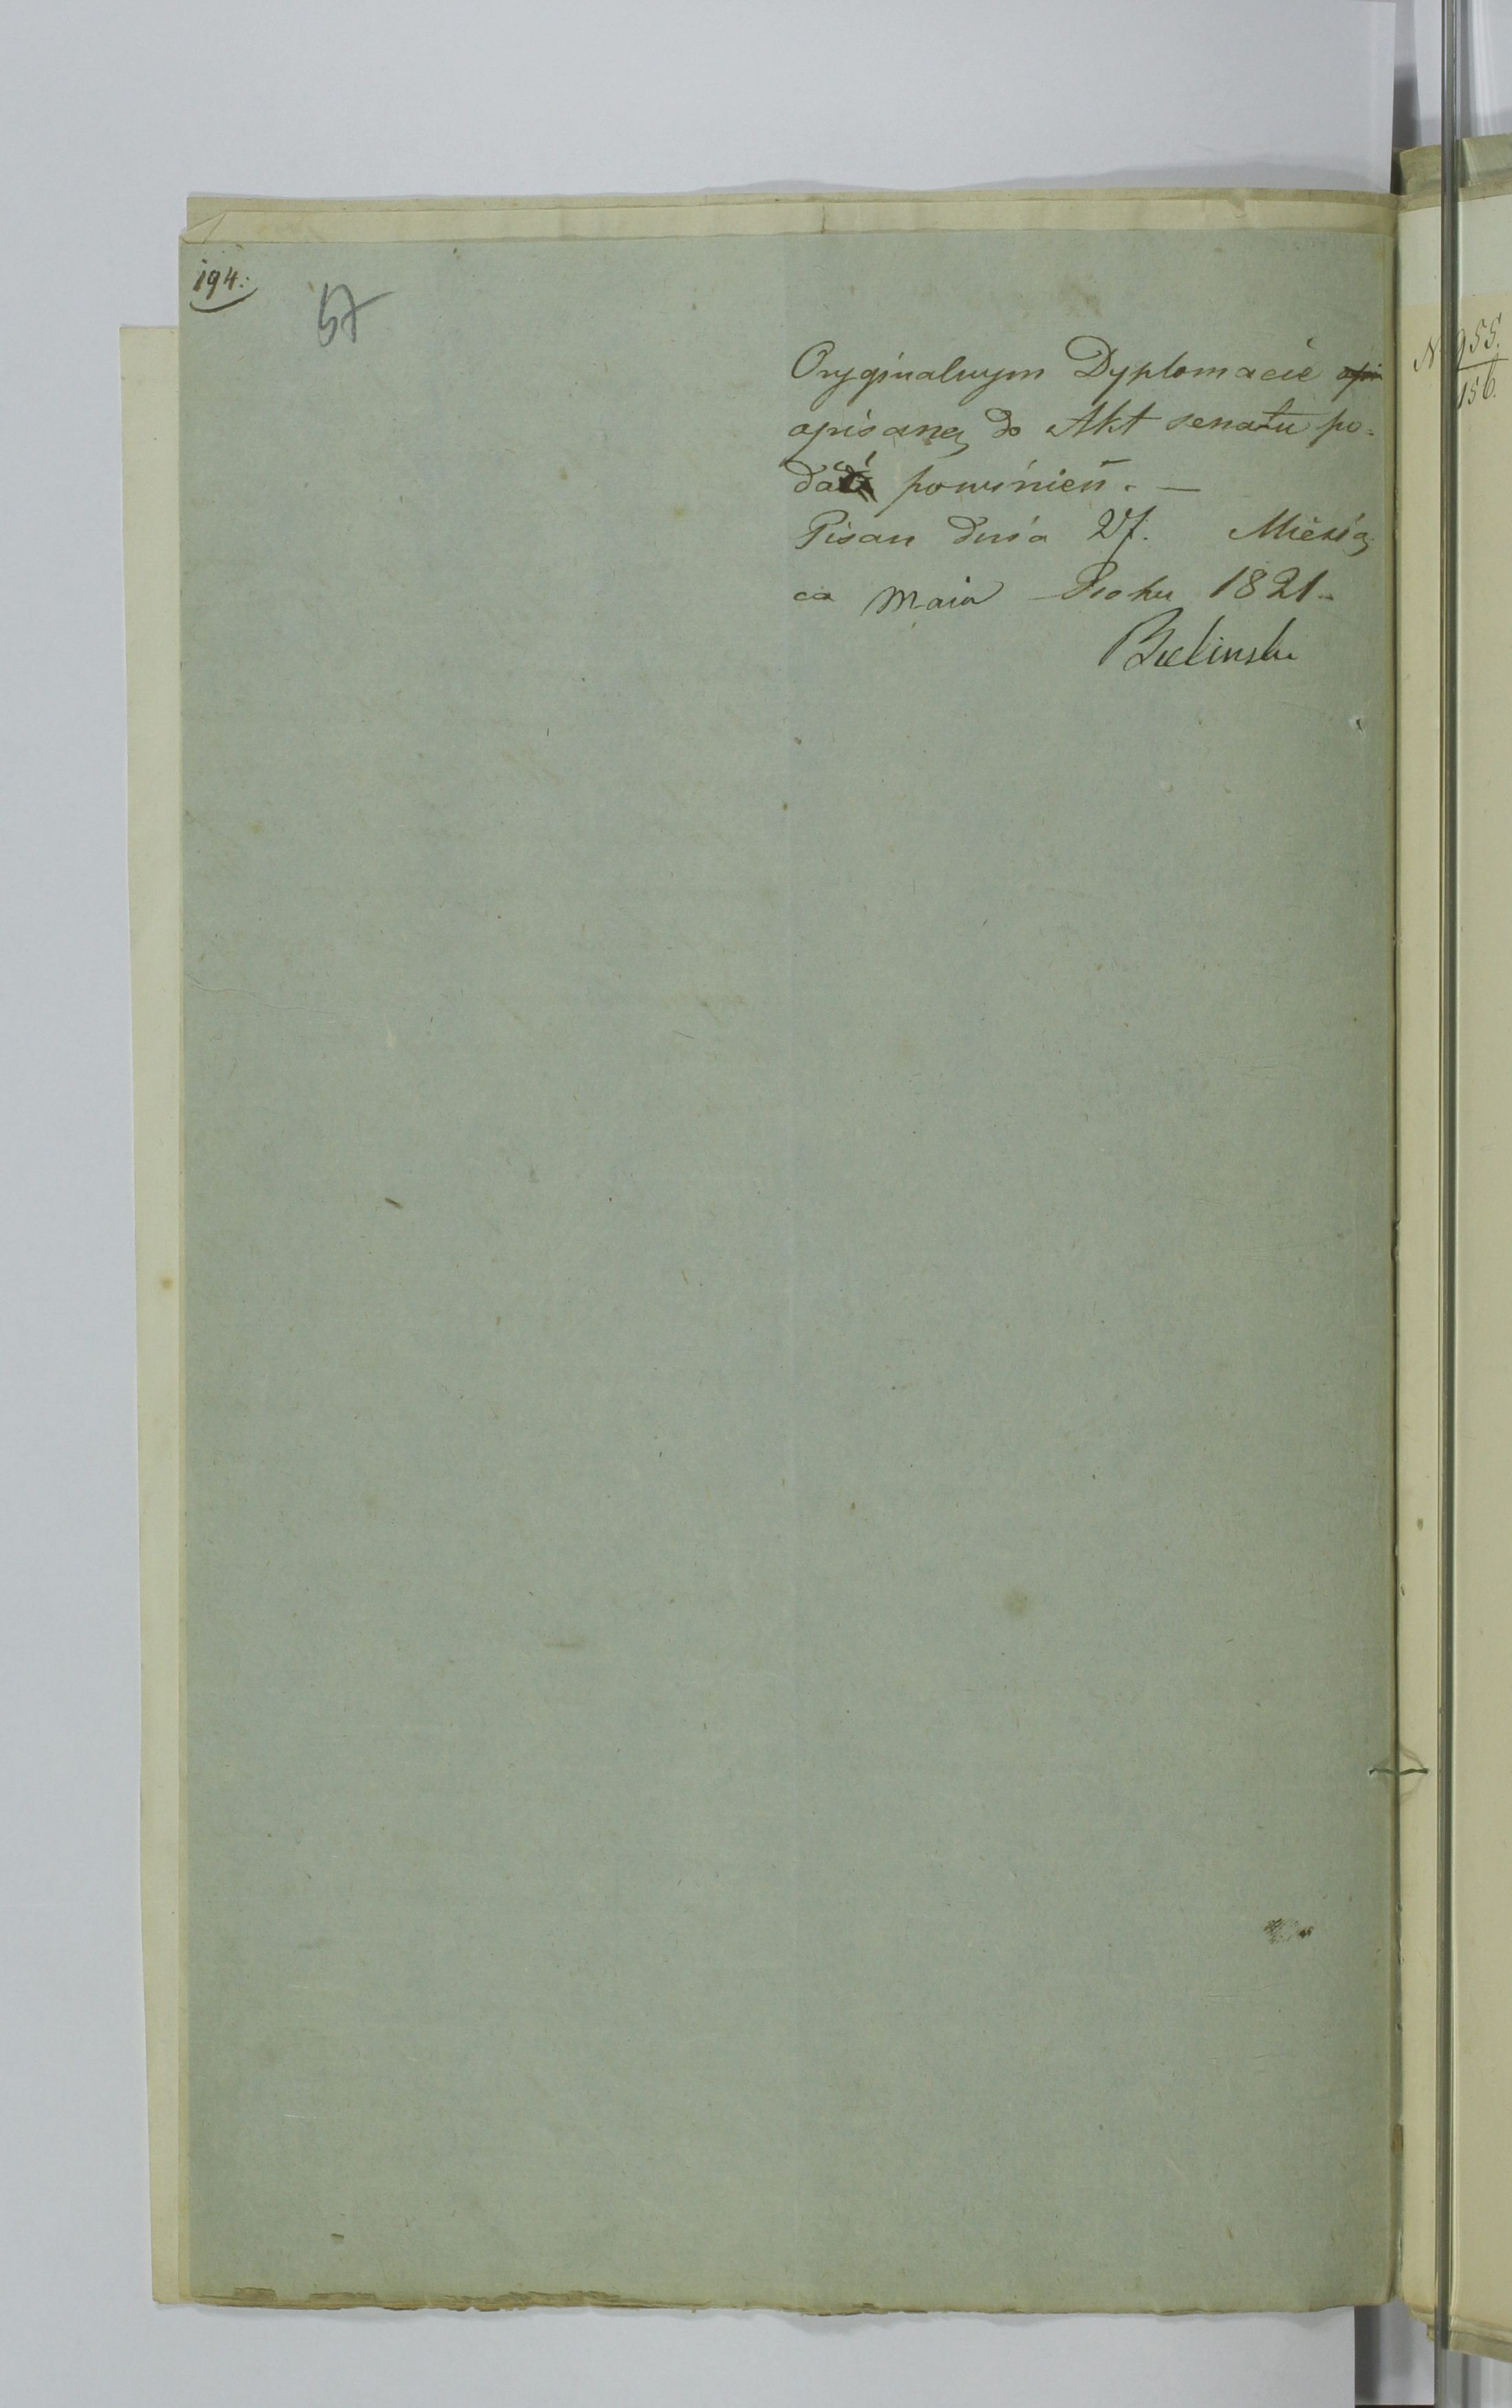 194.
57
Oryginalnym Dyplomacie opi
opisaną do Akt senatu po-
dać powinień. —
Pisan dnia 27. Miesią
ca Maia Roku 1821.
Bielinski
N 955.
156.